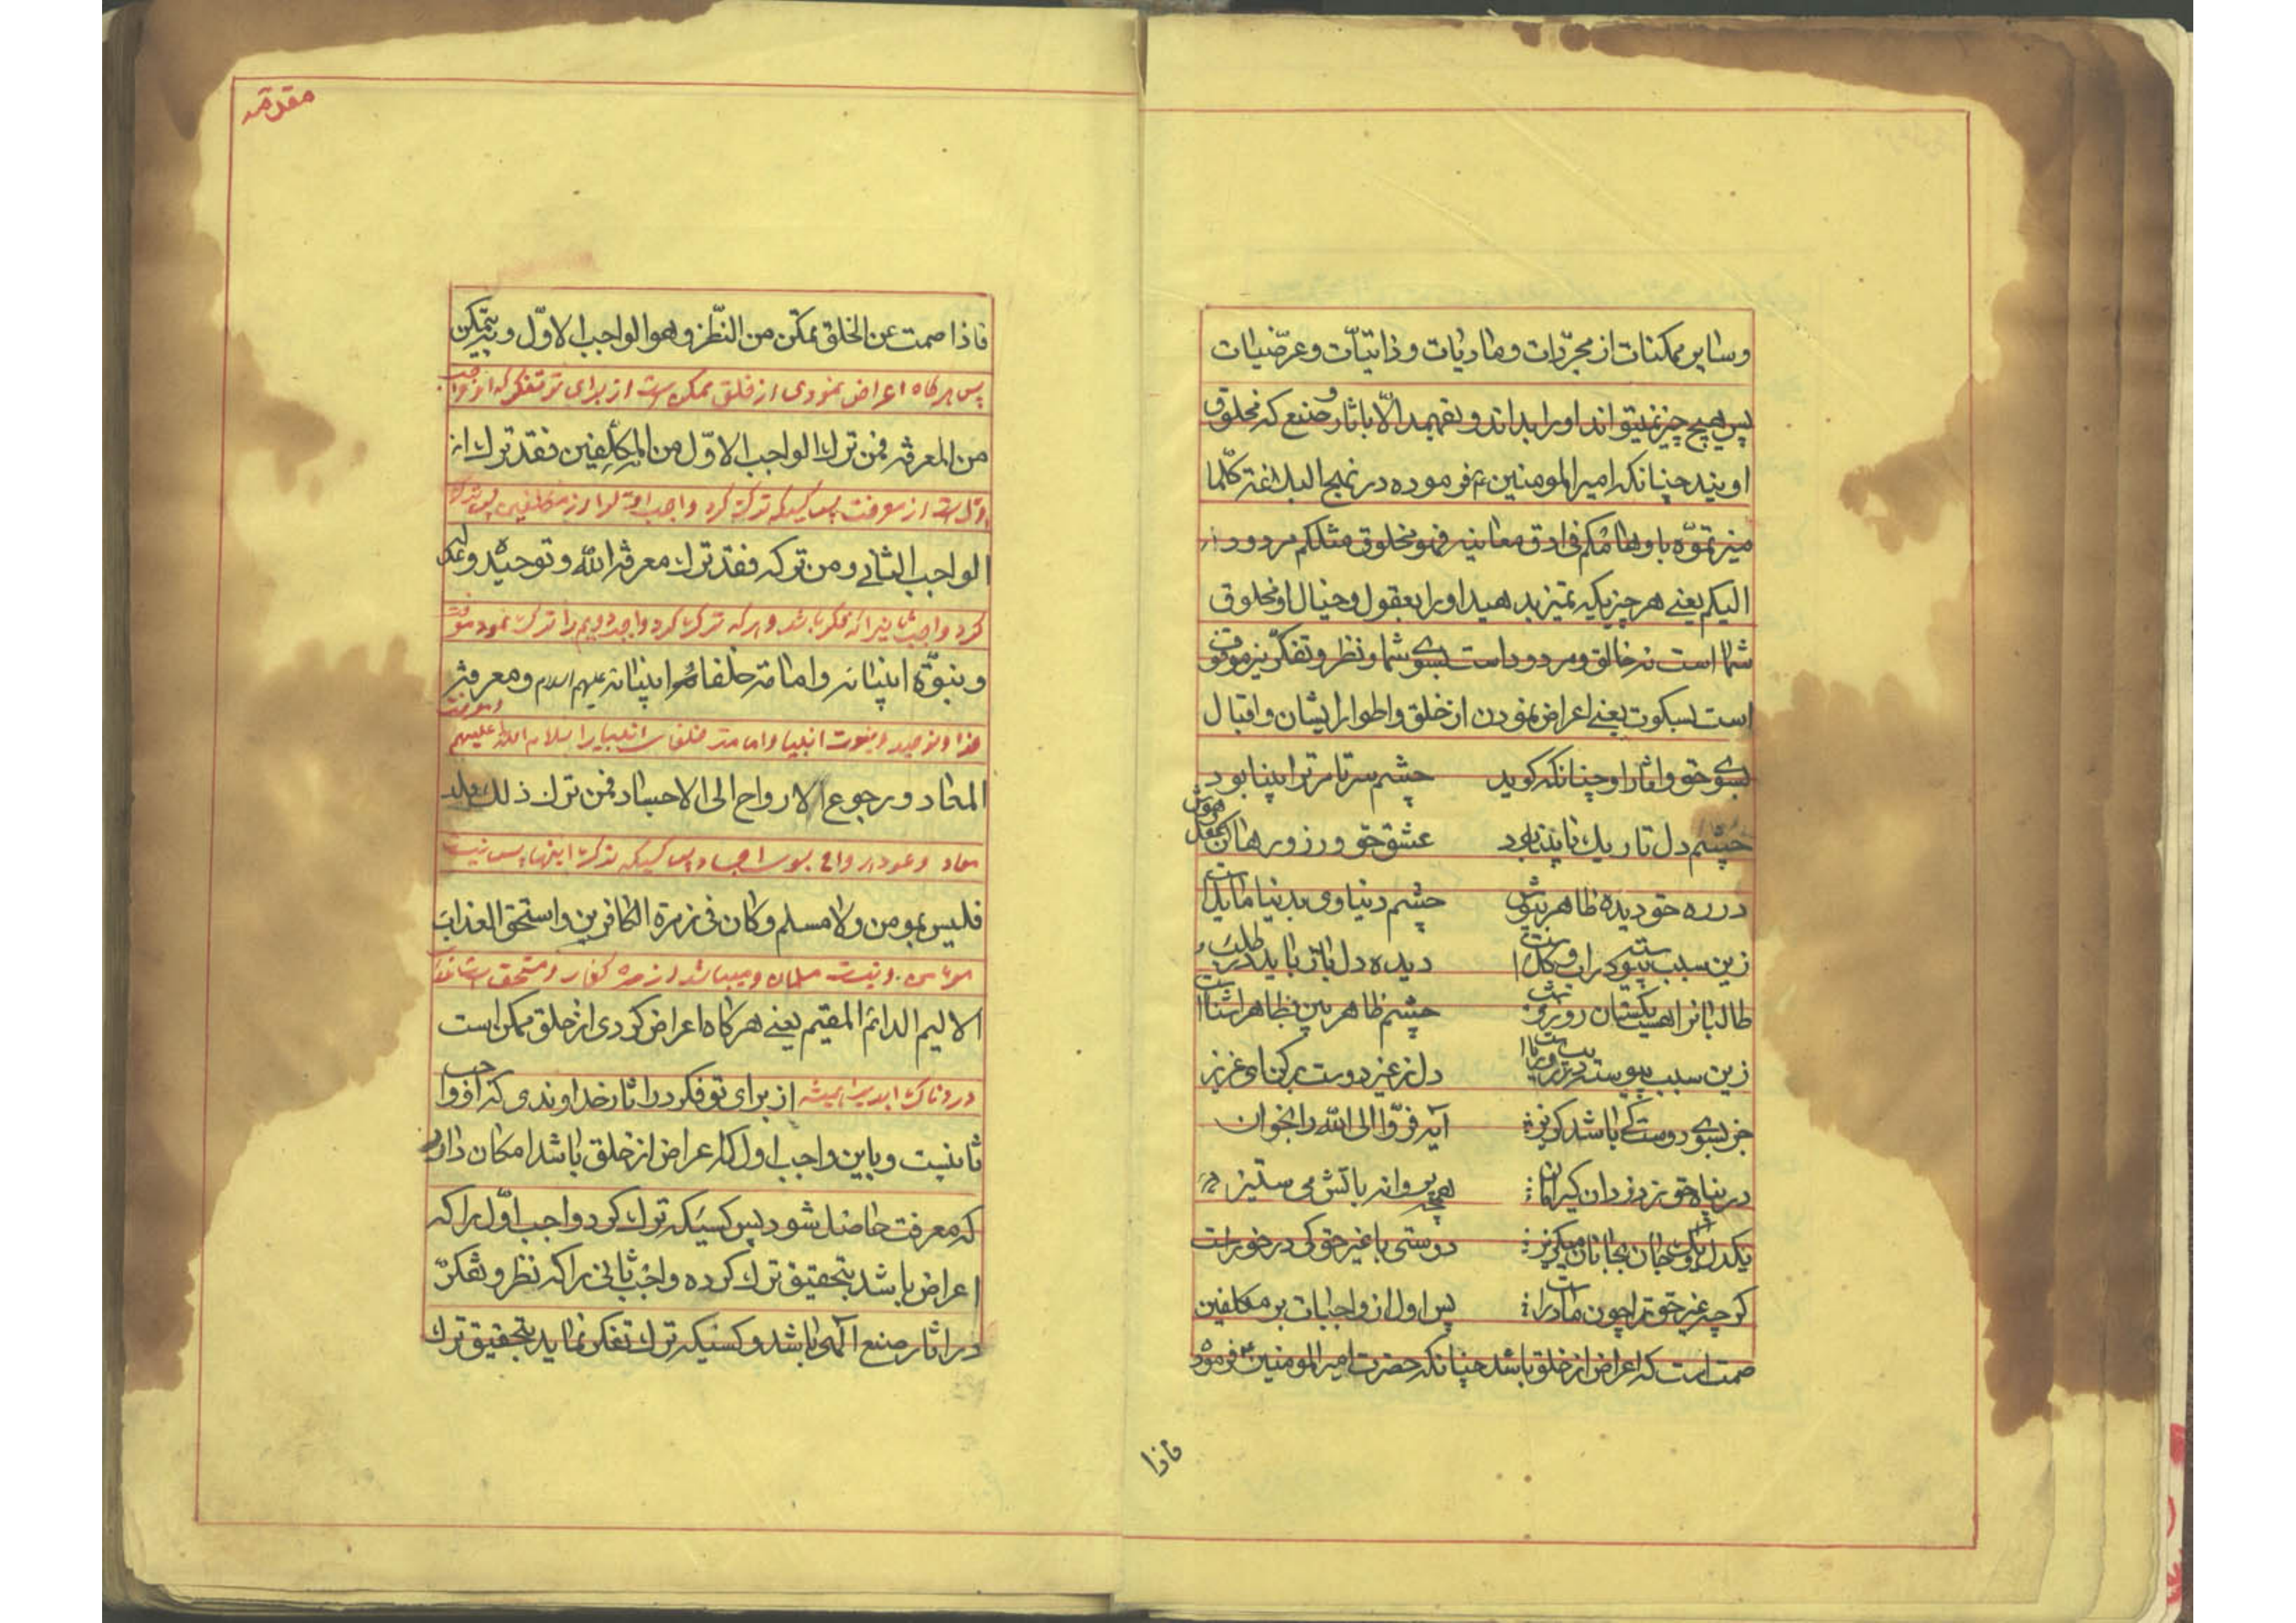 وسایر ممکنات از مجرّدات ومادیات وذاتیّات وعرضیات
پس هیچ چیز نمیتواند اورا بداند ونفهمد الّا باثار وصنع که مخلوق
اویند چنانکه امیرالمومنین ع فرموده در نهج البلاغة کلّما
میزتموّه باوهامکم فی ادق معانیه فهو مخلوق مثلکم مردود
الیکم یعنی هر چیزیکه تمیز بدهید اورا بعقول وخیال او مخلوق
شما است نه خالق ومردود است بسوی شما ونظر وتفکّر نیز موقوف
است بسکوت یعنی اعراض نمودن از خلق واطوار ایشان واقبال
بسوی حق واثار او چنانکه کوید چشم سر تا مر ترا بینا بود
چشم دل تاریک نابینا بود عشق حق ورزورهاکن عقل وهوش
در ره حق دیده ظاهر بپوش چشم دنیاوی بدنیا مایل است
زین سبب پیوسته در اب وکل است دیده دل باز باید در طلب
طالبانرا هست یکسان روز وشب چشم ظاهر بین بظاهر اشنا است
زین سبب پیوسته در دل از غیر دوست برکن ای عزیز
جز بسوی دوست کی باشد کریز آیه فرّوا الی الله را بخوان
در پناه حق ز دزدان کیر امان همچو پروانه باتش می ستیز
یکدل ویک جان بجانان میکریز دوستی با غیر حق کی در خور است
کرچه غیر حق ترا چون مادر است پس اول از واجبات بر مکلفین
صمت است که اعراض از خلق باشد چنانکه حضرت امیرالمومنین ع فرموده
فاذا
مقدمه
فاذا صمت عن الخلق تمکّن من النّظر وهو الواجب الاوّل ویتمکّن
پس هرکاه اعراض نمودی از خلق ممکن است از برای تو تفکر که او واجب
من المعرفة فمن ترک الواجب الاوّل من المکلّفین فقد ترک
اول است از معرفت پس کسیکه ترک کرد واجب اول را از مکلفین پس ترک
الواجب الثانی ومن ترکه فقد ترک معرفة الله وتوحیده وعدله
کرد واجب ثانیرا که فکر باشد وهرکه ترک کرد واجب دویم را ترک نمود معرفت
ونبوّة انبیائه وامامة خلفاء انبیائه علیهم السلام ومعرفة
خدا وتوحید ونبوت انبیا وامامت خلفای انبیا را سلام الله علیهم ومعرفت
المعاد ورجوع الارواح الی الاجساد فمن ترک ذلک
معاد وعود ارواح بسوی اجساد پس کسیکه ترک اینها پس نیست
فلیس بمومن ولا مسلم وکان فی زمرة الکافرین واستحق العذاب
مومن ونیست مسلمان ومیباشد در زمره کفار ومستحق است عذاب
الالیم الدائم المقیم یعنی هرکاه اعراض کردی از خلق ممکن است
دردناک ابدی همیشه از برای تو فکر در اثار خداوندی که او واجب
ثانیست وباین واجب اول که اعراض از خلق باشد امکان دارد
که معرفت حاصل شود پس کسیکه ترک کرد واجب اوّل را که
اعراض باشد بتحقیق ترک کرده واجب ثانی را که نظر وتفکّر
در اثار صنع الهی باشد وکسیکه ترک تفکر نماید بتحقیق ترک